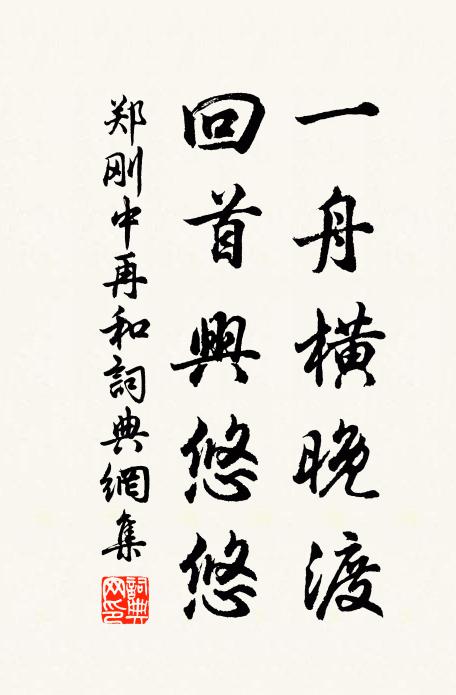 一舟横晚渡
回首興悠悠
郑刚中再和詞典網集
詞典
网印